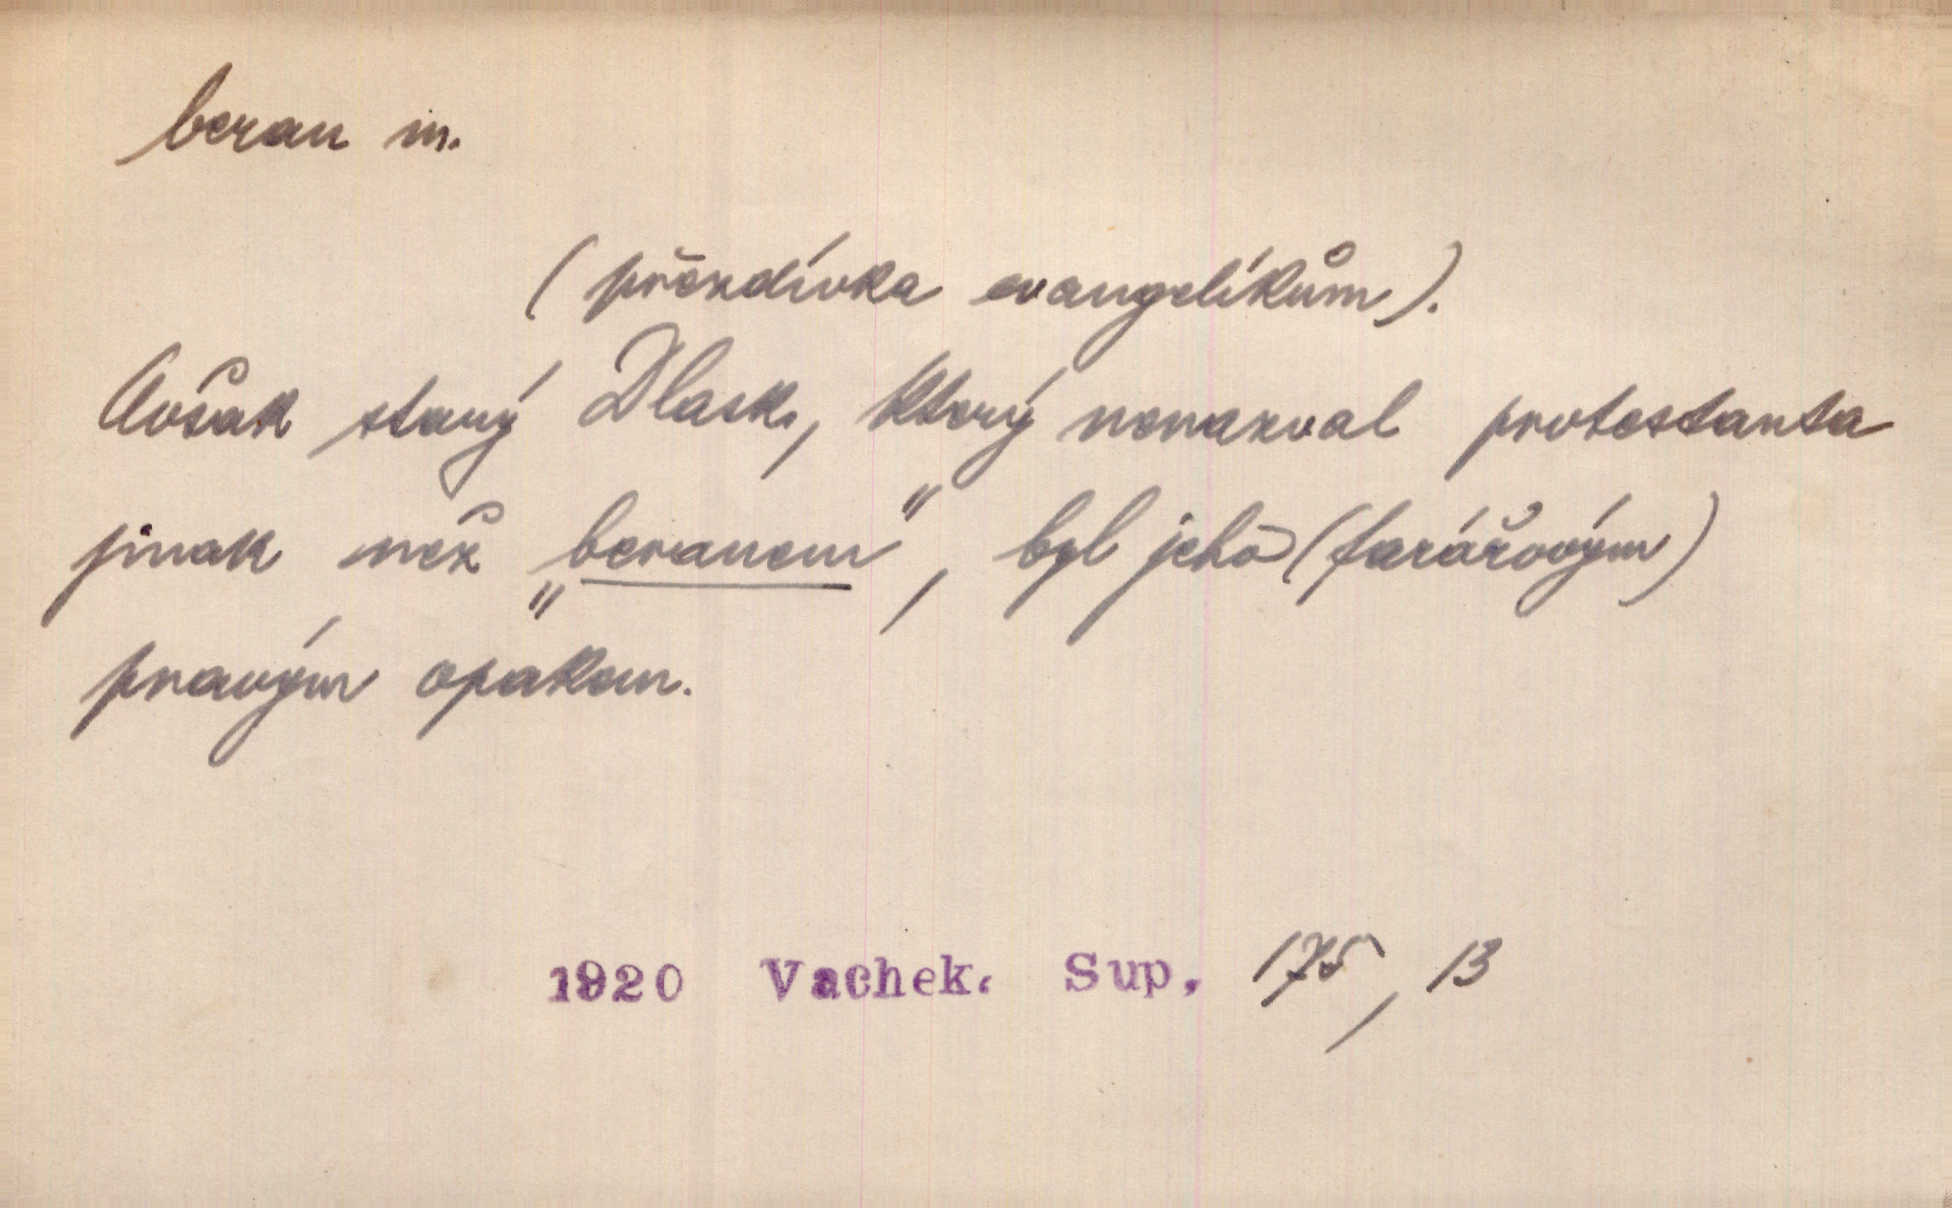 beran m.
(přezdívka evangelíkům).
Avšak starý Dlask, který nenazval protestanta
jinak než „beranem", byl jeho (farářovým)
pravým opakem.
1920 Vachek. Sup. 175, 13